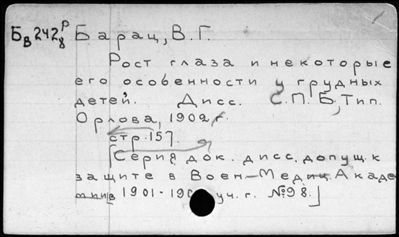 Бв 242 р/8 Барац, В.Г.
Рост глаза и некоторые
его особенности у грудных
детей. Дисс. С.П.Б, Тип.
Орлова, 1902 г.
стр. 157.
[Серия док. дисс. допущ. к
защите в Воен-Медиц. Акаде
мии в 1901-190 уч. г. №98.]